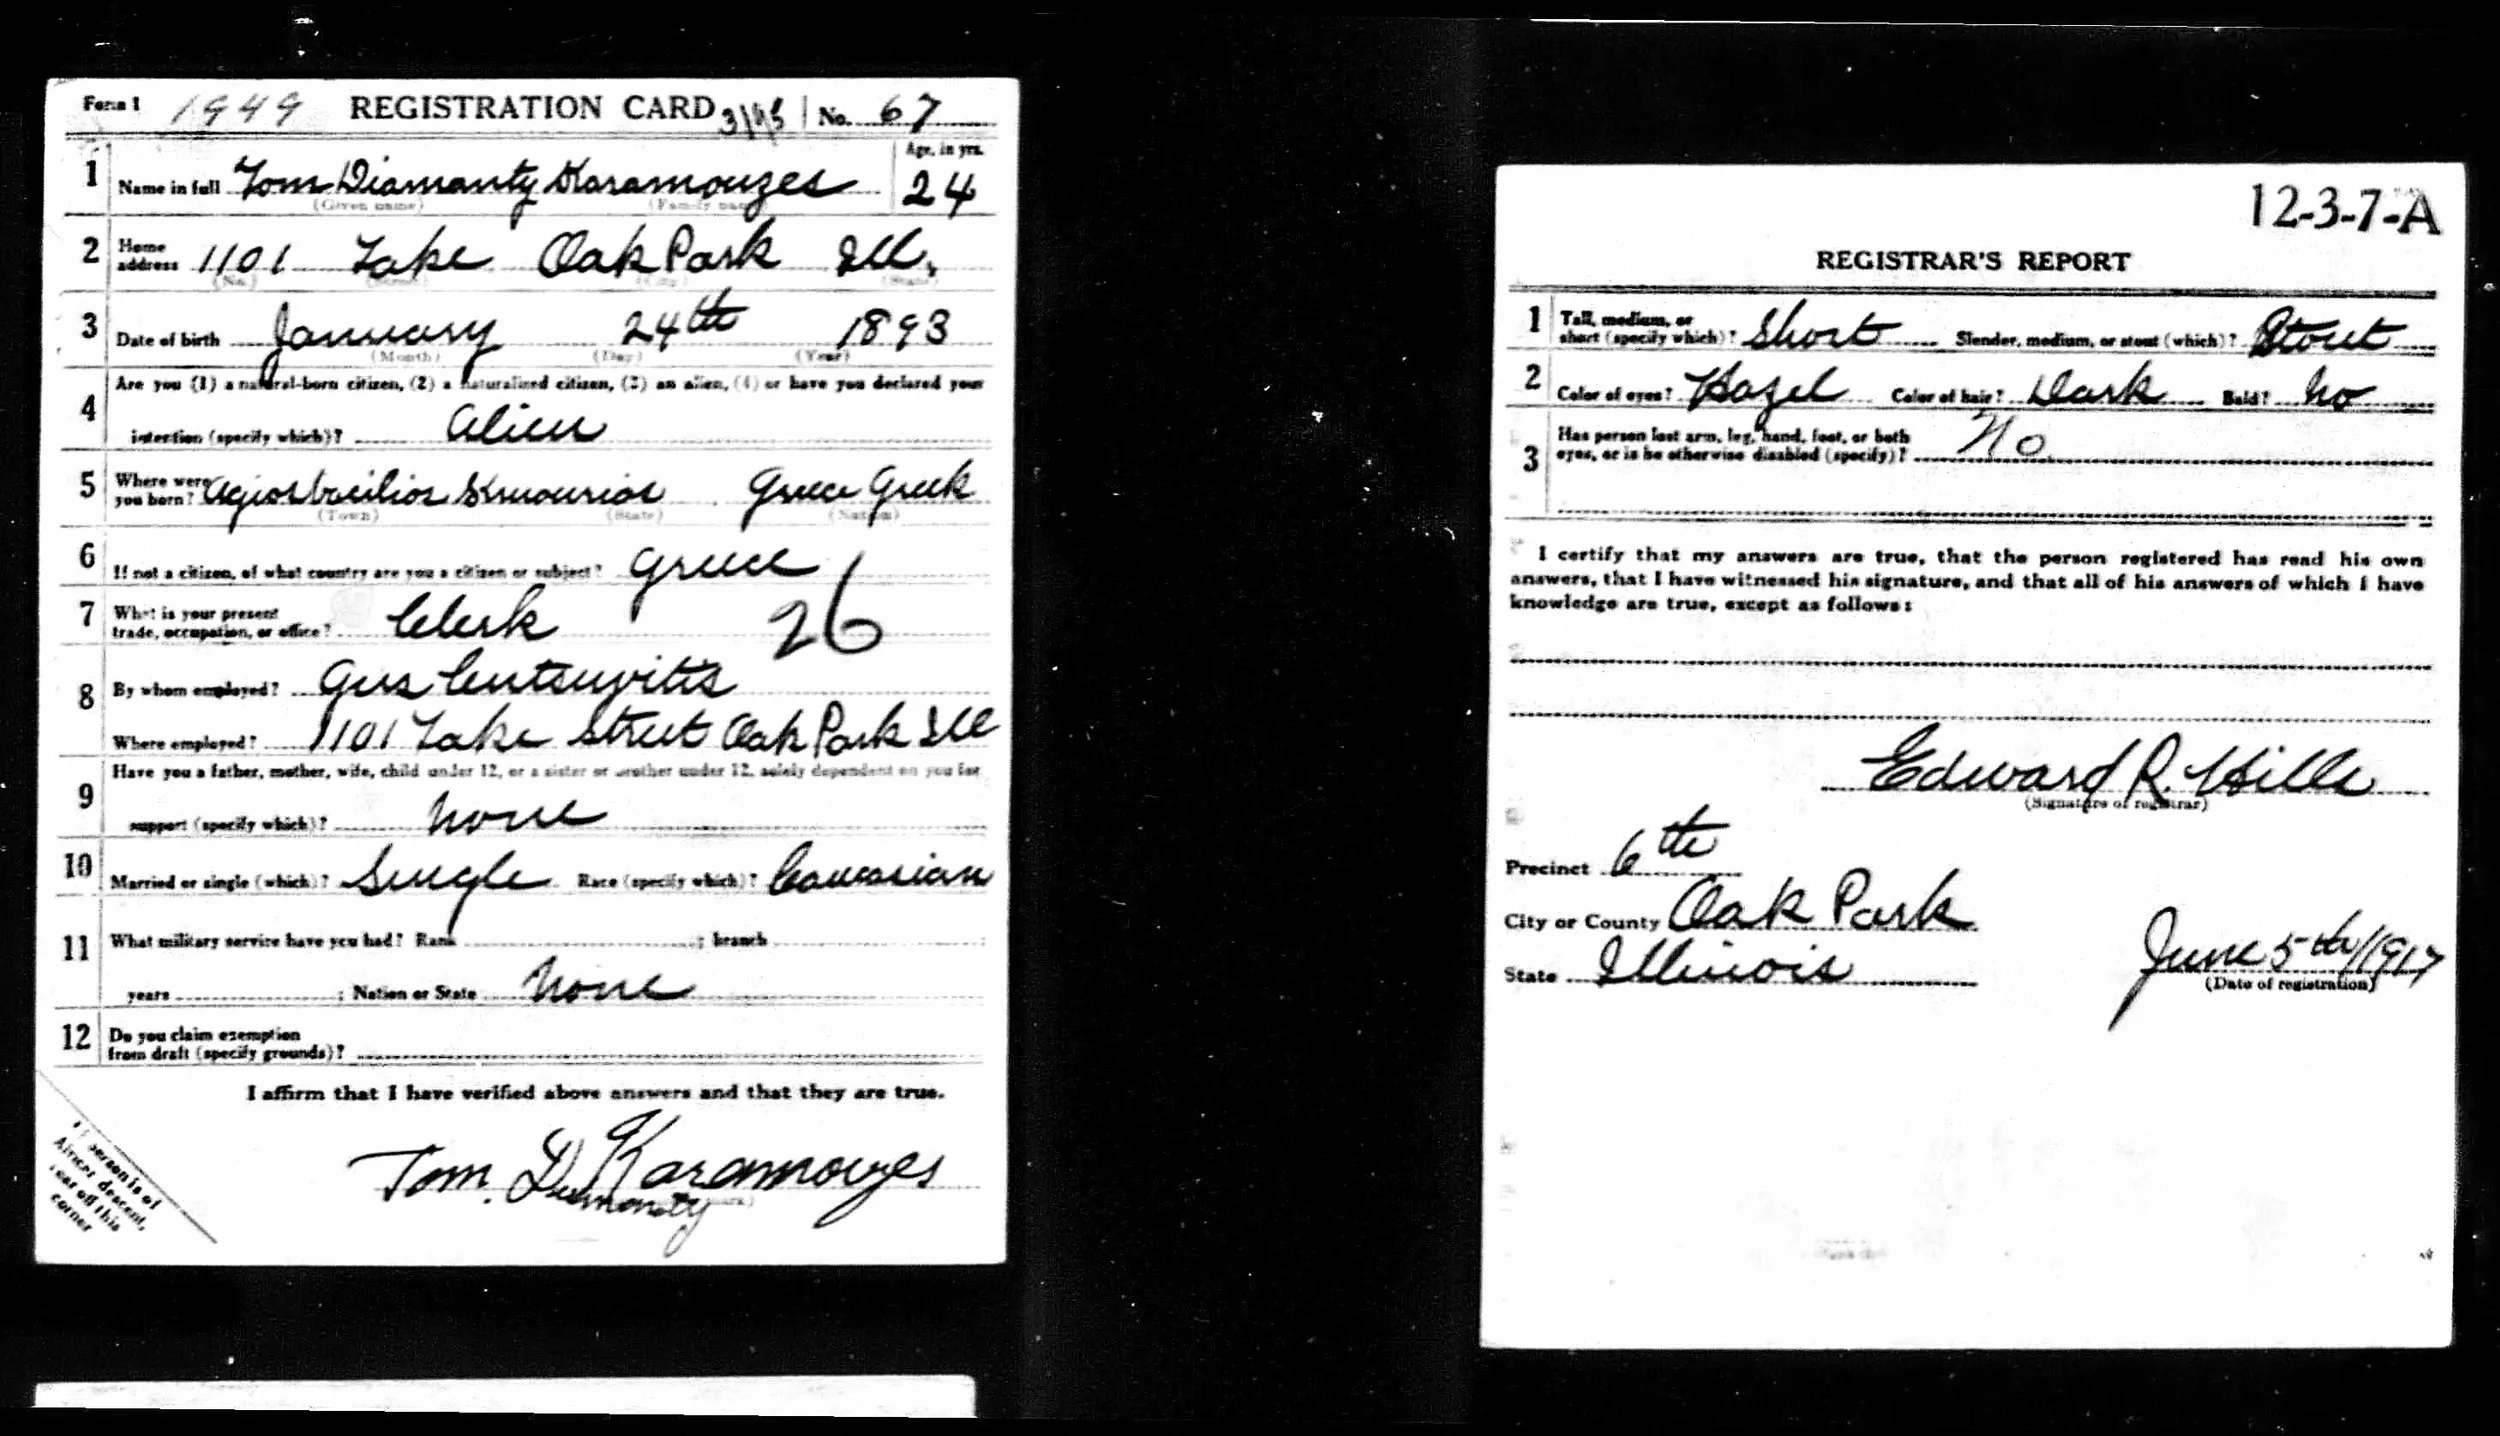 Form 1 1949 REGISTRATION CARD No. 67
1 Name in full Tom Diamanty Karamouzes Age, in yrs. 24
(Given name) (Family name)
2 Home address 1101 Lake Oak Park Ill.
(No.) (Street) (City) (State)
3 Date of birth January 24th 1893
(Month) (Day) (Year)
4 Are you (1) a natural-born citizen, (2) a naturalized citizen, (3) an alien, (4) or have you declared your
intention (specify which)? alien
5 Where were you born? Agios Greece Greek
(Town) (State) (Nation)
6 If not a citizen, of what country are you a citizen or subject? Greece
7 What is your present
trade, occupation, or office? Clerk 26
8 By whom employed? Gus
Where employed? 1101 Lake Street Oak Park Ill
9 Have you a father, mother, wife, child under 12, or a sister or brother under 12, solely dependent on you for
support (specify which)? None
10 Married or single (which)? Single Race (specify which)? Caucasian
11 What military service have you had? Rank ; branch
years ; Nation or State None
12 Do you claim exemption
from draft (specify grounds)?
I affirm that I have verified above answers and that they are true.
Tom. D Karamouzes
Diamanty
person is of
African descent,
tear off this
corner
12-3-7-A
REGISTRAR'S REPORT
1 Tall, medium, or
short (specify which)? Short Slender, medium, or stout (which)? Stout
2 Color of eyes? Hazel Color of hair? Dark Bald? No
3 Has person lost arm, leg, hand, foot, or both
eyes, or is he otherwise disabled (specify)? No
I certify that my answers are true, that the person registered has read his own
answers, that I have witnessed his signature, and that all of his answers of which I have
knowledge are true, except as follows:
Edward R. Hills
(Signature of registrar)
Precinct 6th
City or County Oak Park
State Illinois
June 5th/1917
(Date of registration)